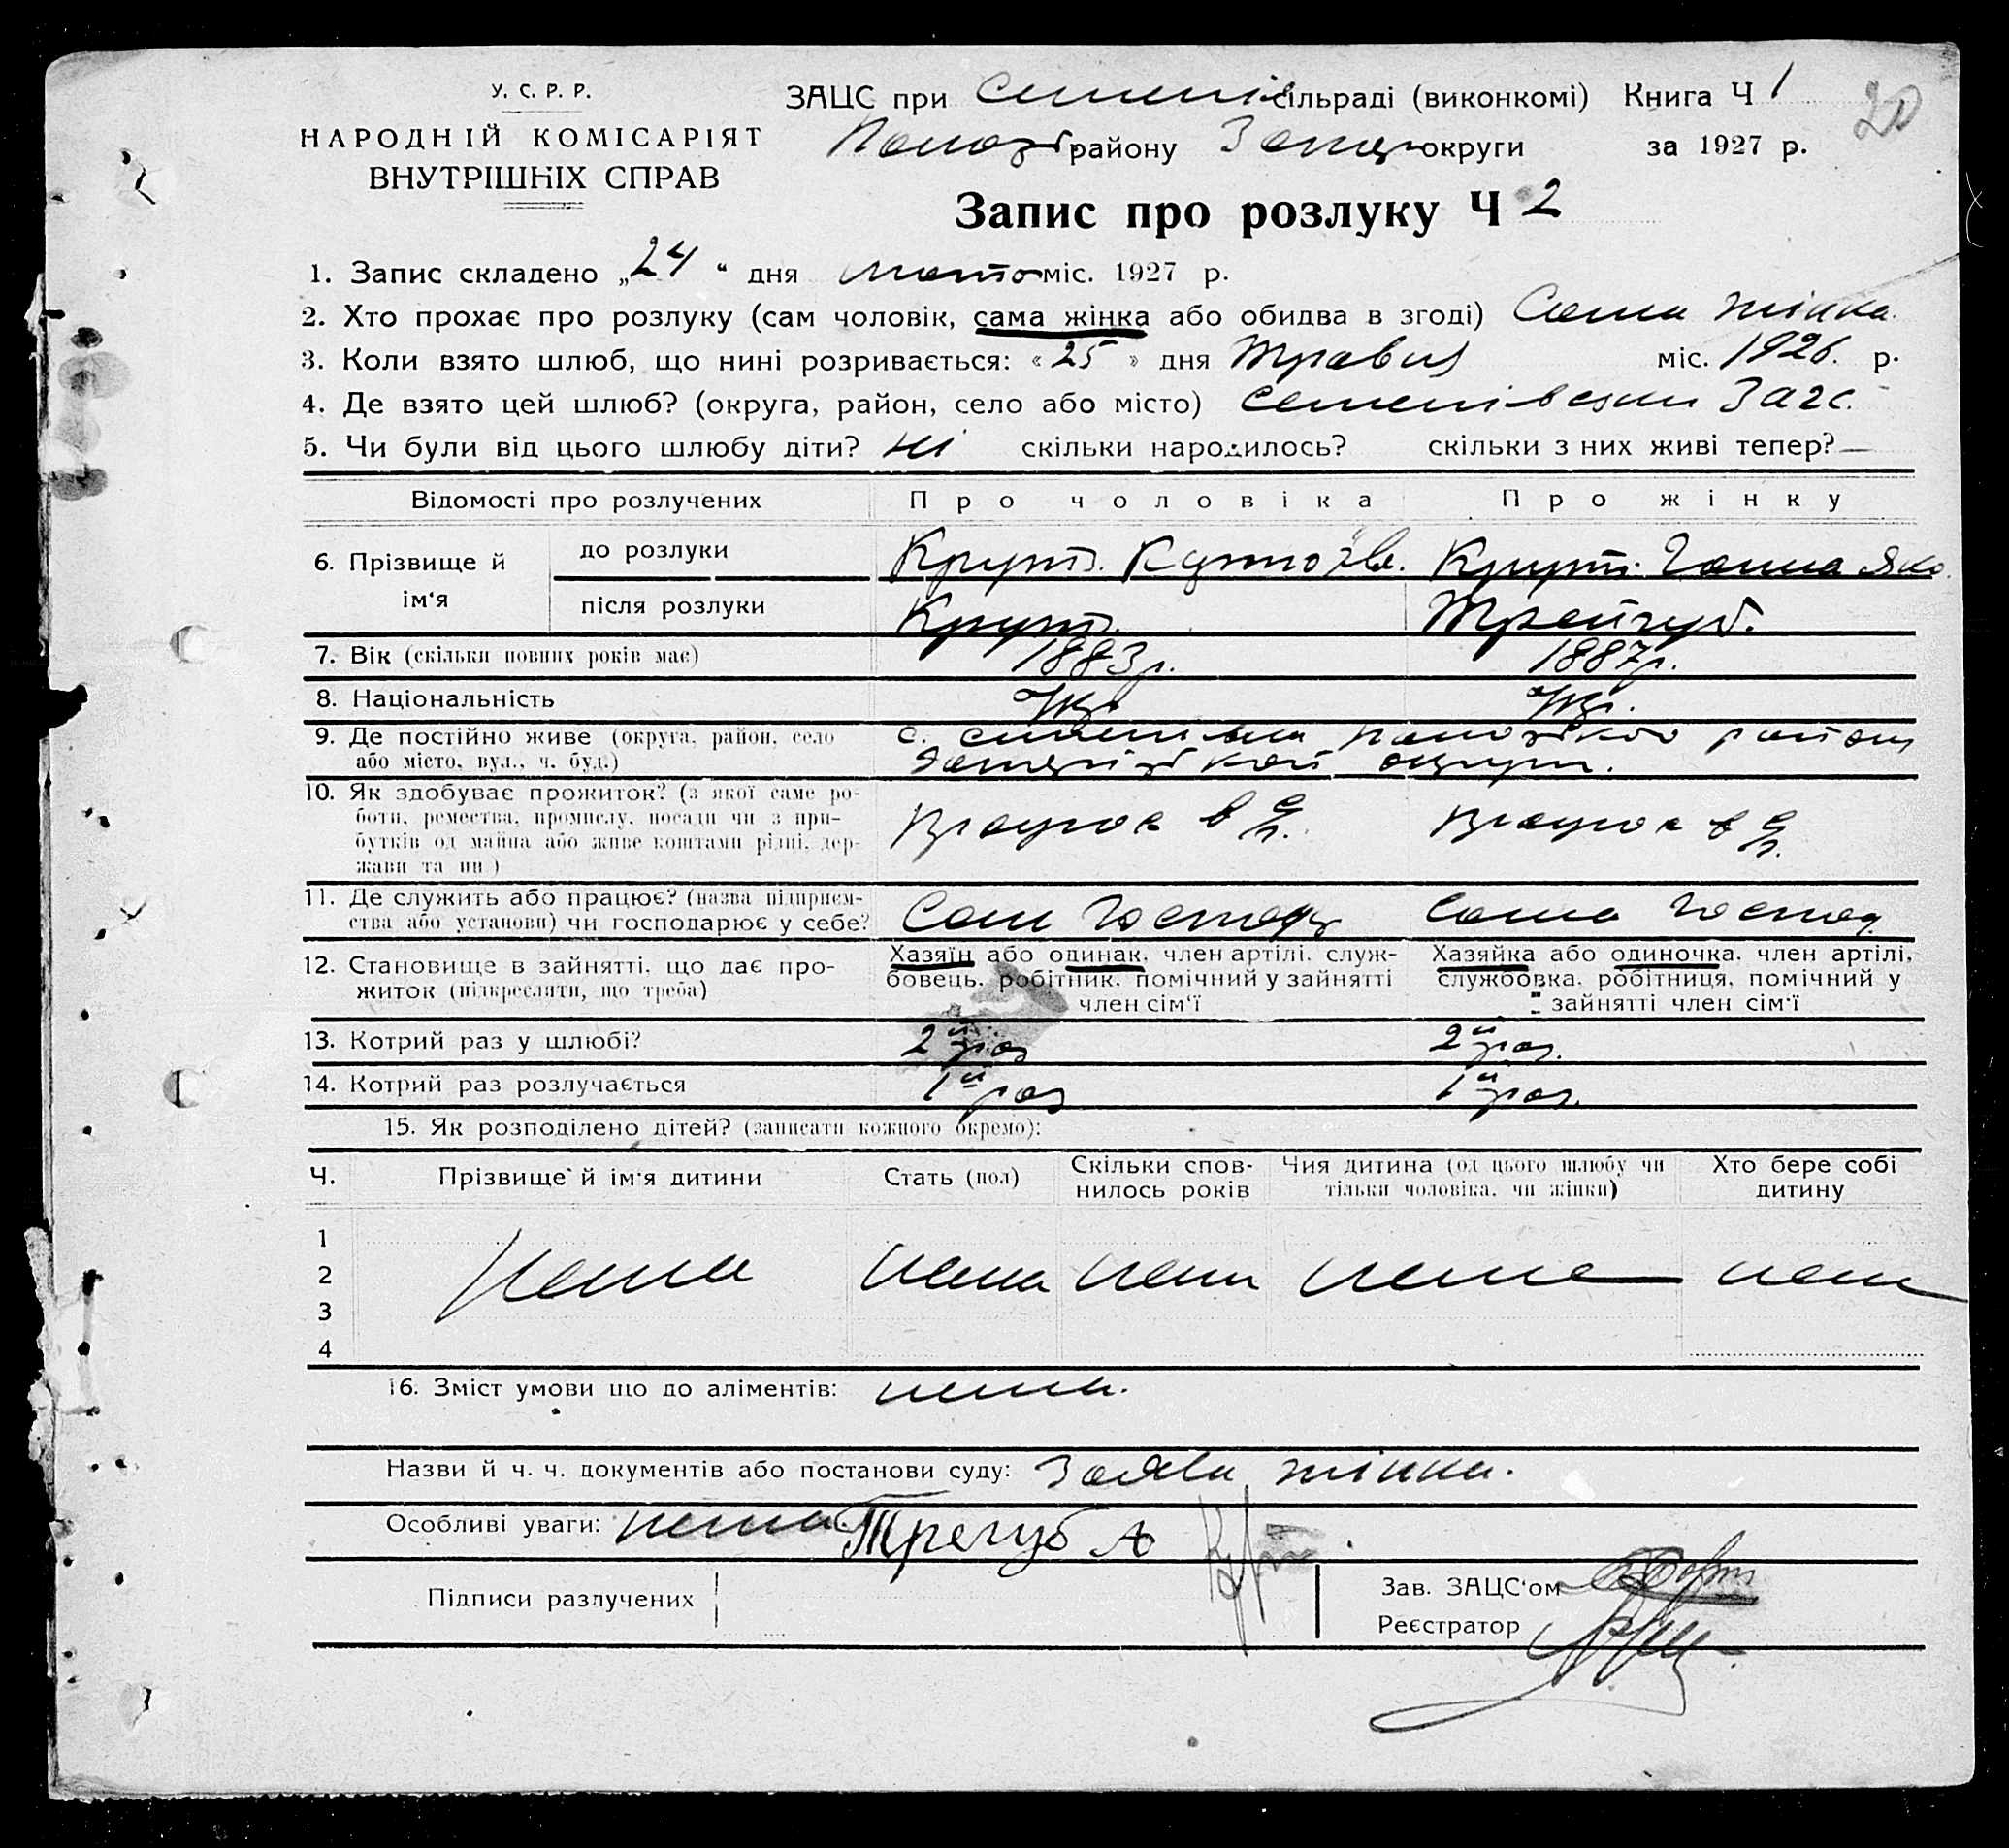 У. С. Р. Р.
НАРОДНІЙ КОМІСАРІЯТ
ВНУТРІШНІХ СПРАВ
ЗАЦС при Семенів сільраді (виконкомі) Книга Ч 1
20
району округи за 1927 р.
Запис про розлуку Ч 2
1. Запис складено „24“ дня лютого міс. 1927 р.
2. Хто прохає про розлуку (сам чоловік, сама жінка або обидва в згоді) Сама жінка.
3. Коли взято шлюб, що нині розривається: «25» дня Травня міс. 1926. р.
4. Де взято цей шлюб? (округа, район, село або місто) Семенівский Загс.
5. Чи були від цього шлюбу діти? Ні скільки народилось? скільки з них живі тепер? —
Відомості про розлучених Про чоловіка Про жінку
6. Прізвище й ім'я до розлуки Крут. Крут. Ганна Яко.
після розлуки Крут. Трейгуб.
7. Вік (скільки повних років має) 1883 р. 1887 р.
8. Національність Укр. Укр.
9. Де постійно живе (округа, район, село с. Семенівка району
або місто, вул., ч. буд.) округи.
10. Як здобуває прожиток? (з якої саме ро-
боти, ремества, промислу, посади чи з при-
бутків од майна або живе коштами рідні, дер-
жави та ин.)
11. Де служить або працює? (назва підприєм- Сам Господар Сама Господ.
ства або установи) чи господарює у себе?
12. Становище в зайнятті, що дає про-
житок (підкреслити, що треба)
Хазяїн або одинак, член артілі, служ-
бовець, робітник, помічний у зайнятті
член сім'ї
Хазяйка або одиночка, член артілі,
службовка, робітниця, помічний у
зайнятті член сім'ї
13. Котрий раз у шлюбі? 2й раз 2й раз.
14. Котрий раз розлучається 1й раз 1й раз.
15. Як розподілено дітей? (записати кожного окремо):
Ч. Прізвище й ім'я дитини Стать (пол) Скільки спов-нилось років Чия дитина (од цього шлюбу чи тільки чоловіка, чи жінки) Хто бере собі дитину
1
2 Нема нема нема нема нема
3
4
16. Зміст умови що до аліментів: нема.
Назви й ч. ч. документів або постанови суду: Заява жінки.
Особливі уваги: нема Трегуб А
Підписи разлучених
Зав. ЗАЦС'ом
Реєстратор